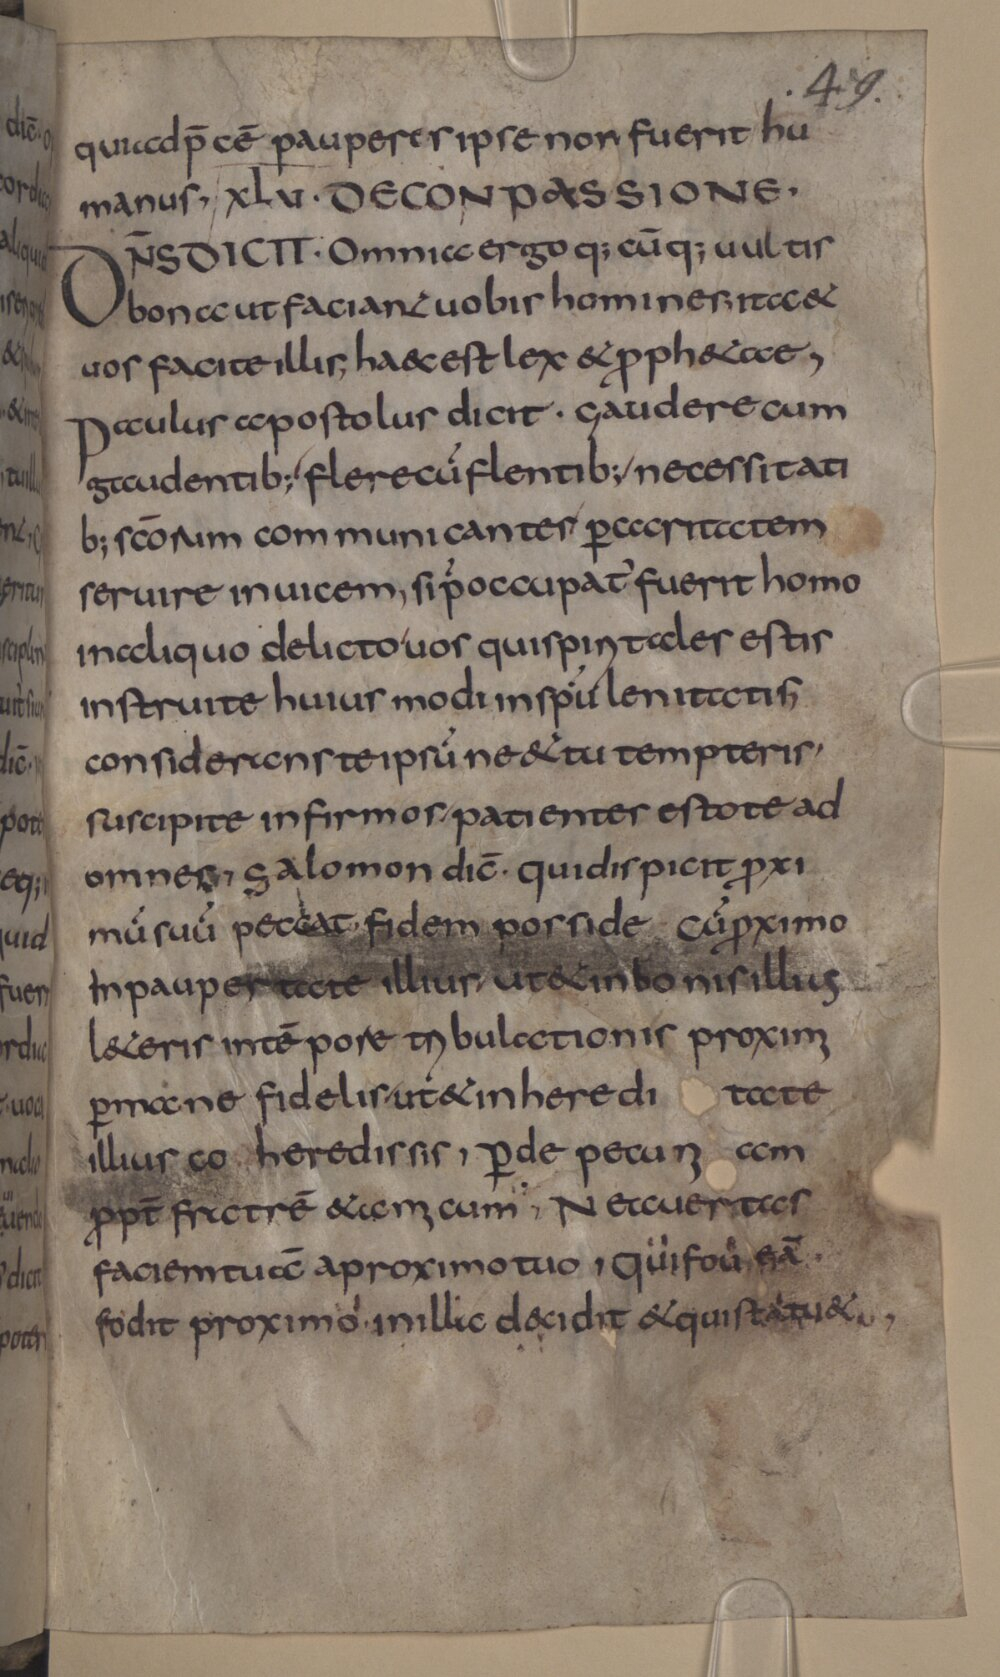 .49.
quia ad p̄cē pauperes ipse non fuerit hu
manus, xlv. DE CONPASSIONE.
DN̄S DICIT. Omnia ergo q; cū q; uultis
bona ut faciant uobis homines, ita &
uos facite illis, haec est lex & ꝓph&ae,
Paulus apostolus dicit. Gaudere cum
gaudentib; flere cū flentib; necessitati
b; scōrum communicantes ꝑ caritatem
seruire inuicem, si p̄occupat' fuerit homo
in aliquo delicto uos qui spiritales estis
instruite huius modi in spū lenitatis
considerans te ipsū ne & tu tempteris,
suscipite infirmos, patientes estote ad
omnes, Salomon dic̄. qui dispicit ꝓxi
mū suū peccat. fidem posside cū ꝓximo
In paupertate illius, ut & in bonis illius
l&eris in tēpore tribulationis proximi
ꝑmane fidelis, ut & in heredi tate
illius co heredis sis, ꝑde pecuni am
ꝓpt̄ fratrē & amicum, Ne auertas
faciem tuā a proximo tuo, Qui foū eā
fodit proximo in illa decidit & qui statu&